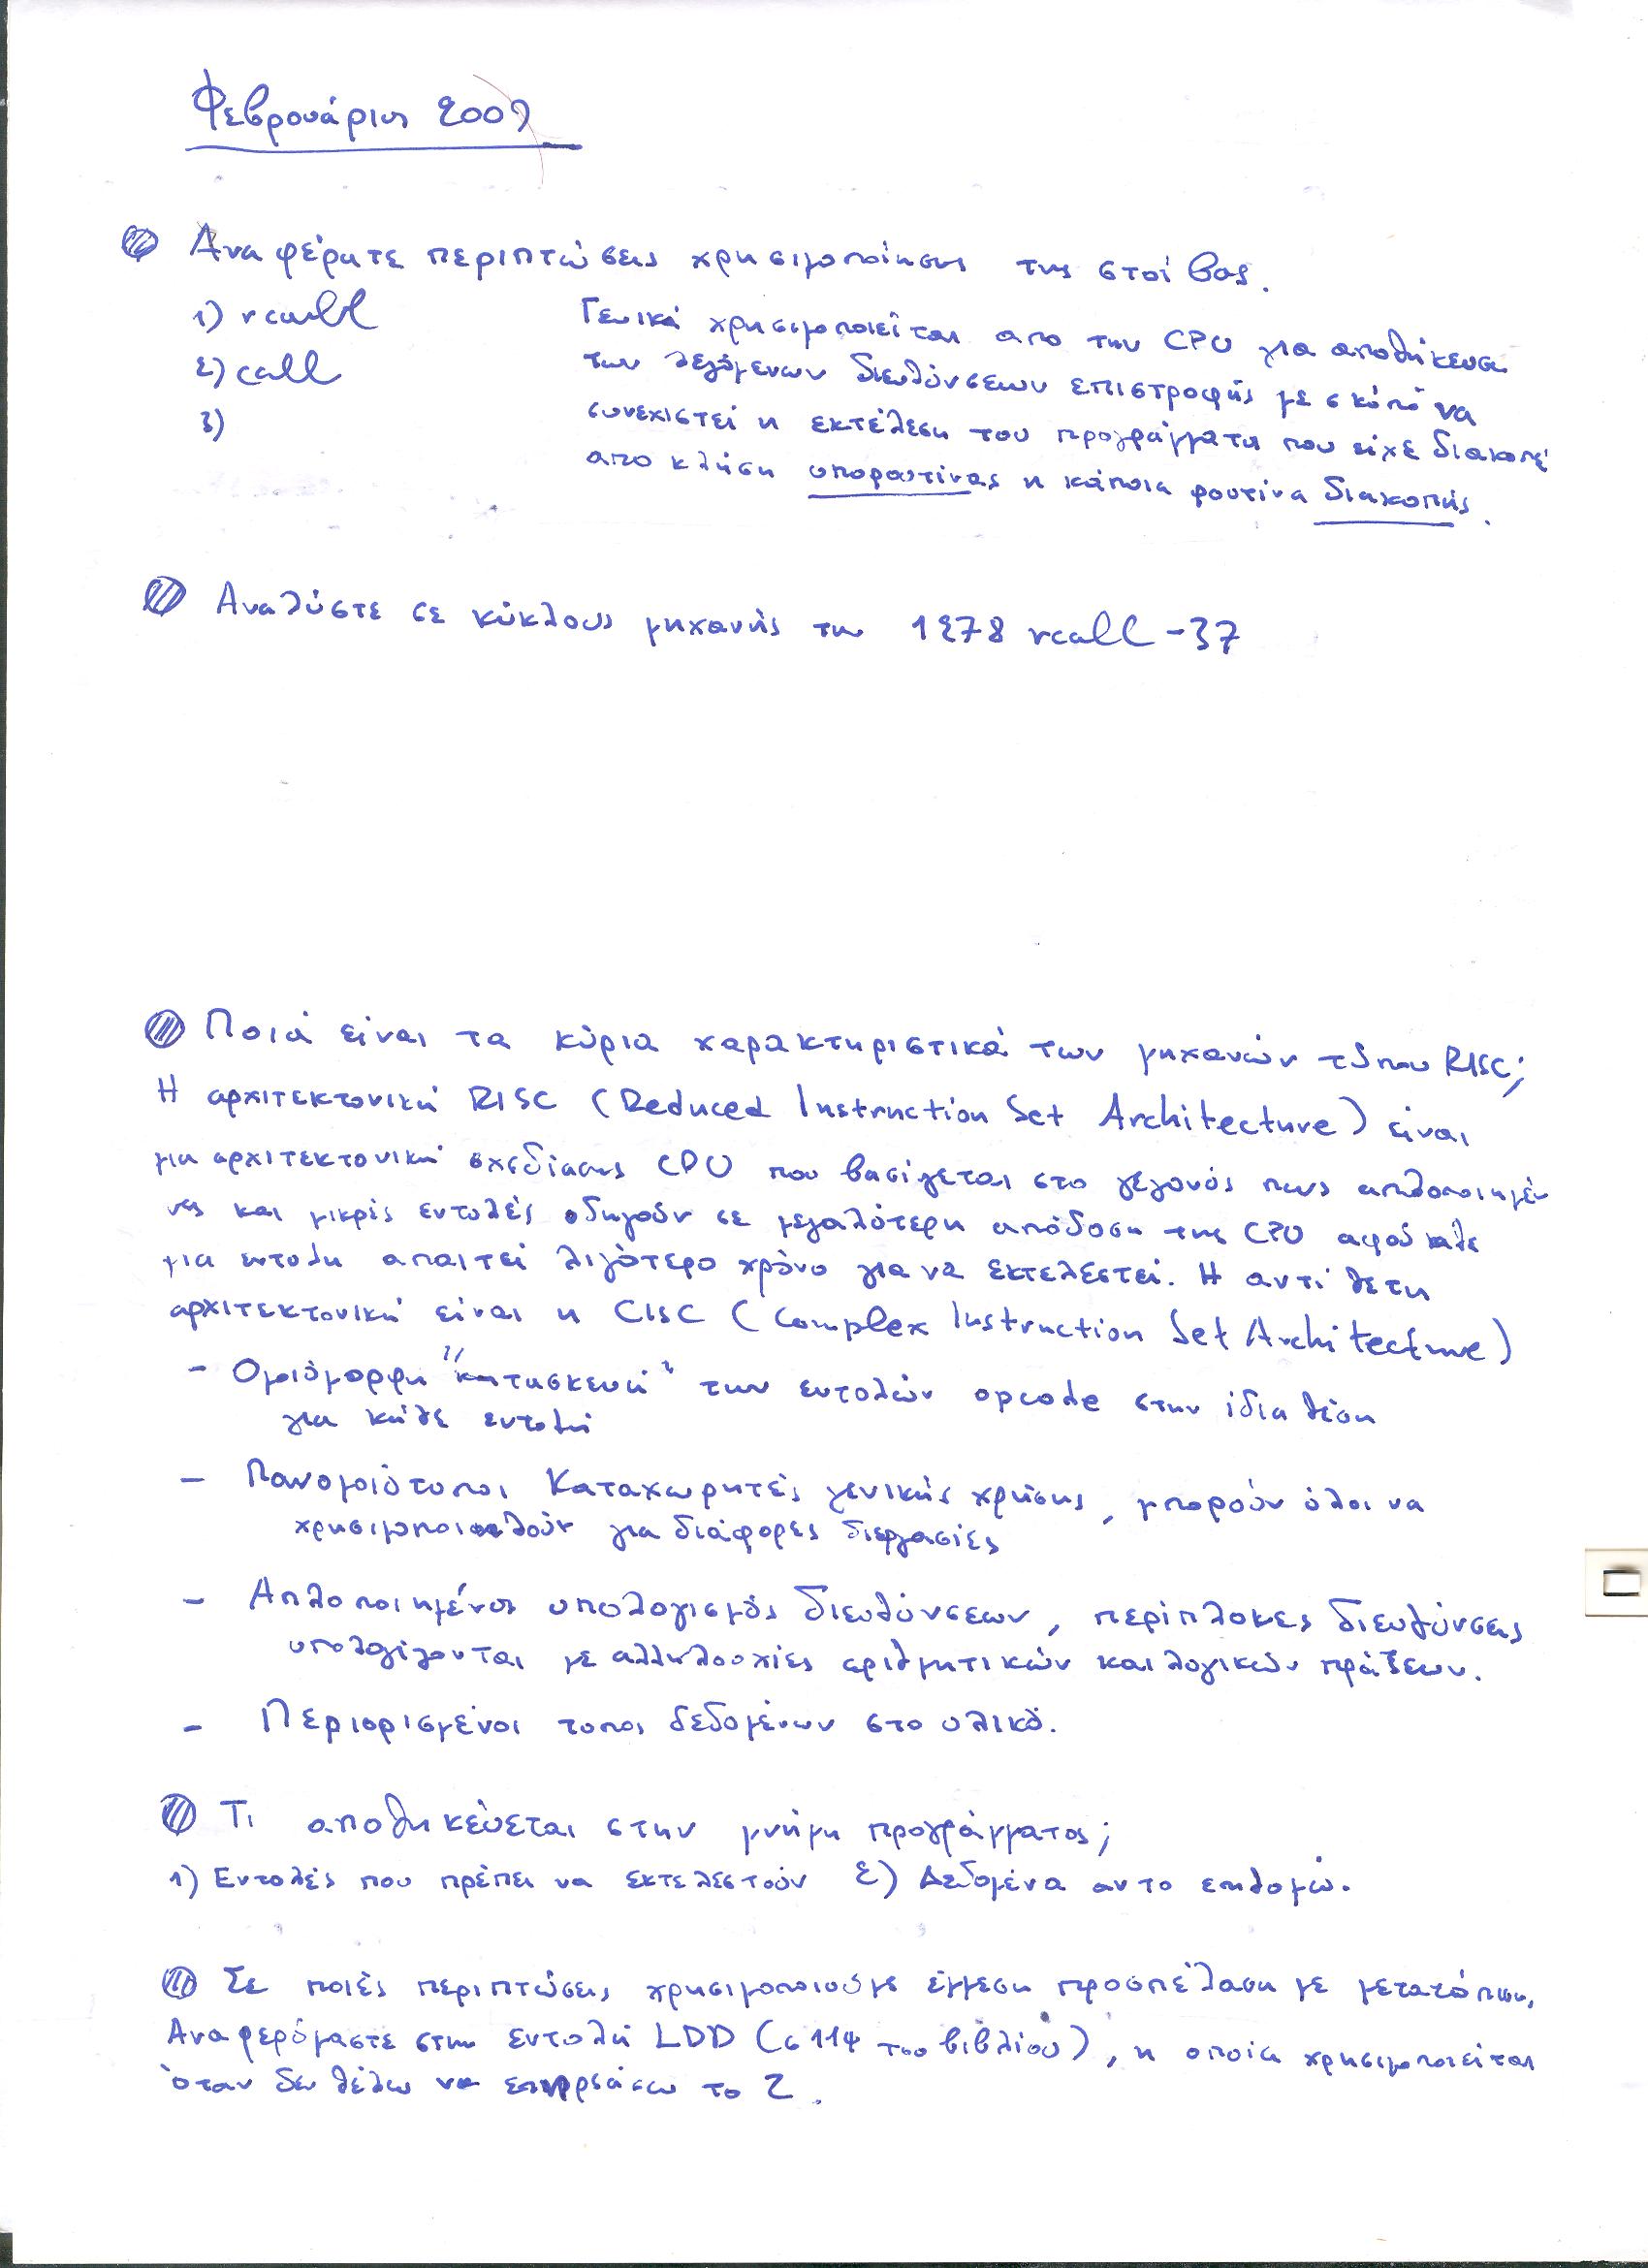 Φεβρουάριος 2009
Αναφέρατε περιπτώσεις χρησιμοποίησης της στοίβας.
1) rcall
2) call
3)
Γενικά χρησιμοποιείται απο την CPU για αποθήκευση
των λεγόμενων διευθύνσεων επιστροφής με σκοπό να
συνεχιστεί η εκτέλεση του προγράμματος που είχε διακοπεί
απο κλήση υπορουτίνας η κάποια ρουτίνα διακοπής.
Αναλύστε σε κύκλους μηχανής την 1278 rcall -37
Ποιά είναι τα κύρια χαρακτηριστικά των μηχανών τύπου RISC;
Η αρχιτεκτονική RISC (Reduced Instruction Set Architecture) είναι
μια αρχιτεκτονική σχεδίασης CPU που βασίζεται στο γεγονός πως απλοποιημέ-
νες και μικρές εντολές οδηγούν σε μεγαλύτερη απόδοση της CPU αφού κάθε
μια εντολη απαιτεί λιγότερο χρόνο για να εκτελεστεί. Η αντίθετη
αρχιτεκτονική είναι η CISC (Complex Instruction Set Architecture)
- Ομοιόμορφη "κατασκευή" των εντολών opcode στην ίδια θέση
για κάθε εντολή
- Πανομοιότυποι Καταχωρητές γενικής χρήσης, μπορούν όλοι να
χρησιμοποιηθούν για διάφορες διεργασίες
- Απλοποιημένος υπολογισμός διευθύνσεων, περίπλοκες διευθύνσεις
υπολογίζονται με αλληλουχίες αριθμητικών και λογικών πράξεων.
- Περιορισμένοι τυποι δεδομένων στο υλικό.
Τι αποθηκεύεται στην μνήμη προγράμματος;
1) Εντολές που πρέπει να εκτελεστούν 2) Δεδομένα αν το επιθυμώ.
Σε ποιές περιπτώσεις χρησιμοποιούμε έμμεση προσπέλαση με μετατόπιση.
Αναφερόμαστε στην εντολή LDD (σ 114 του βιβλίου), η οποία χρησιμοποιείται
όταν δεν θέλω να επηρρεάσω το Z.